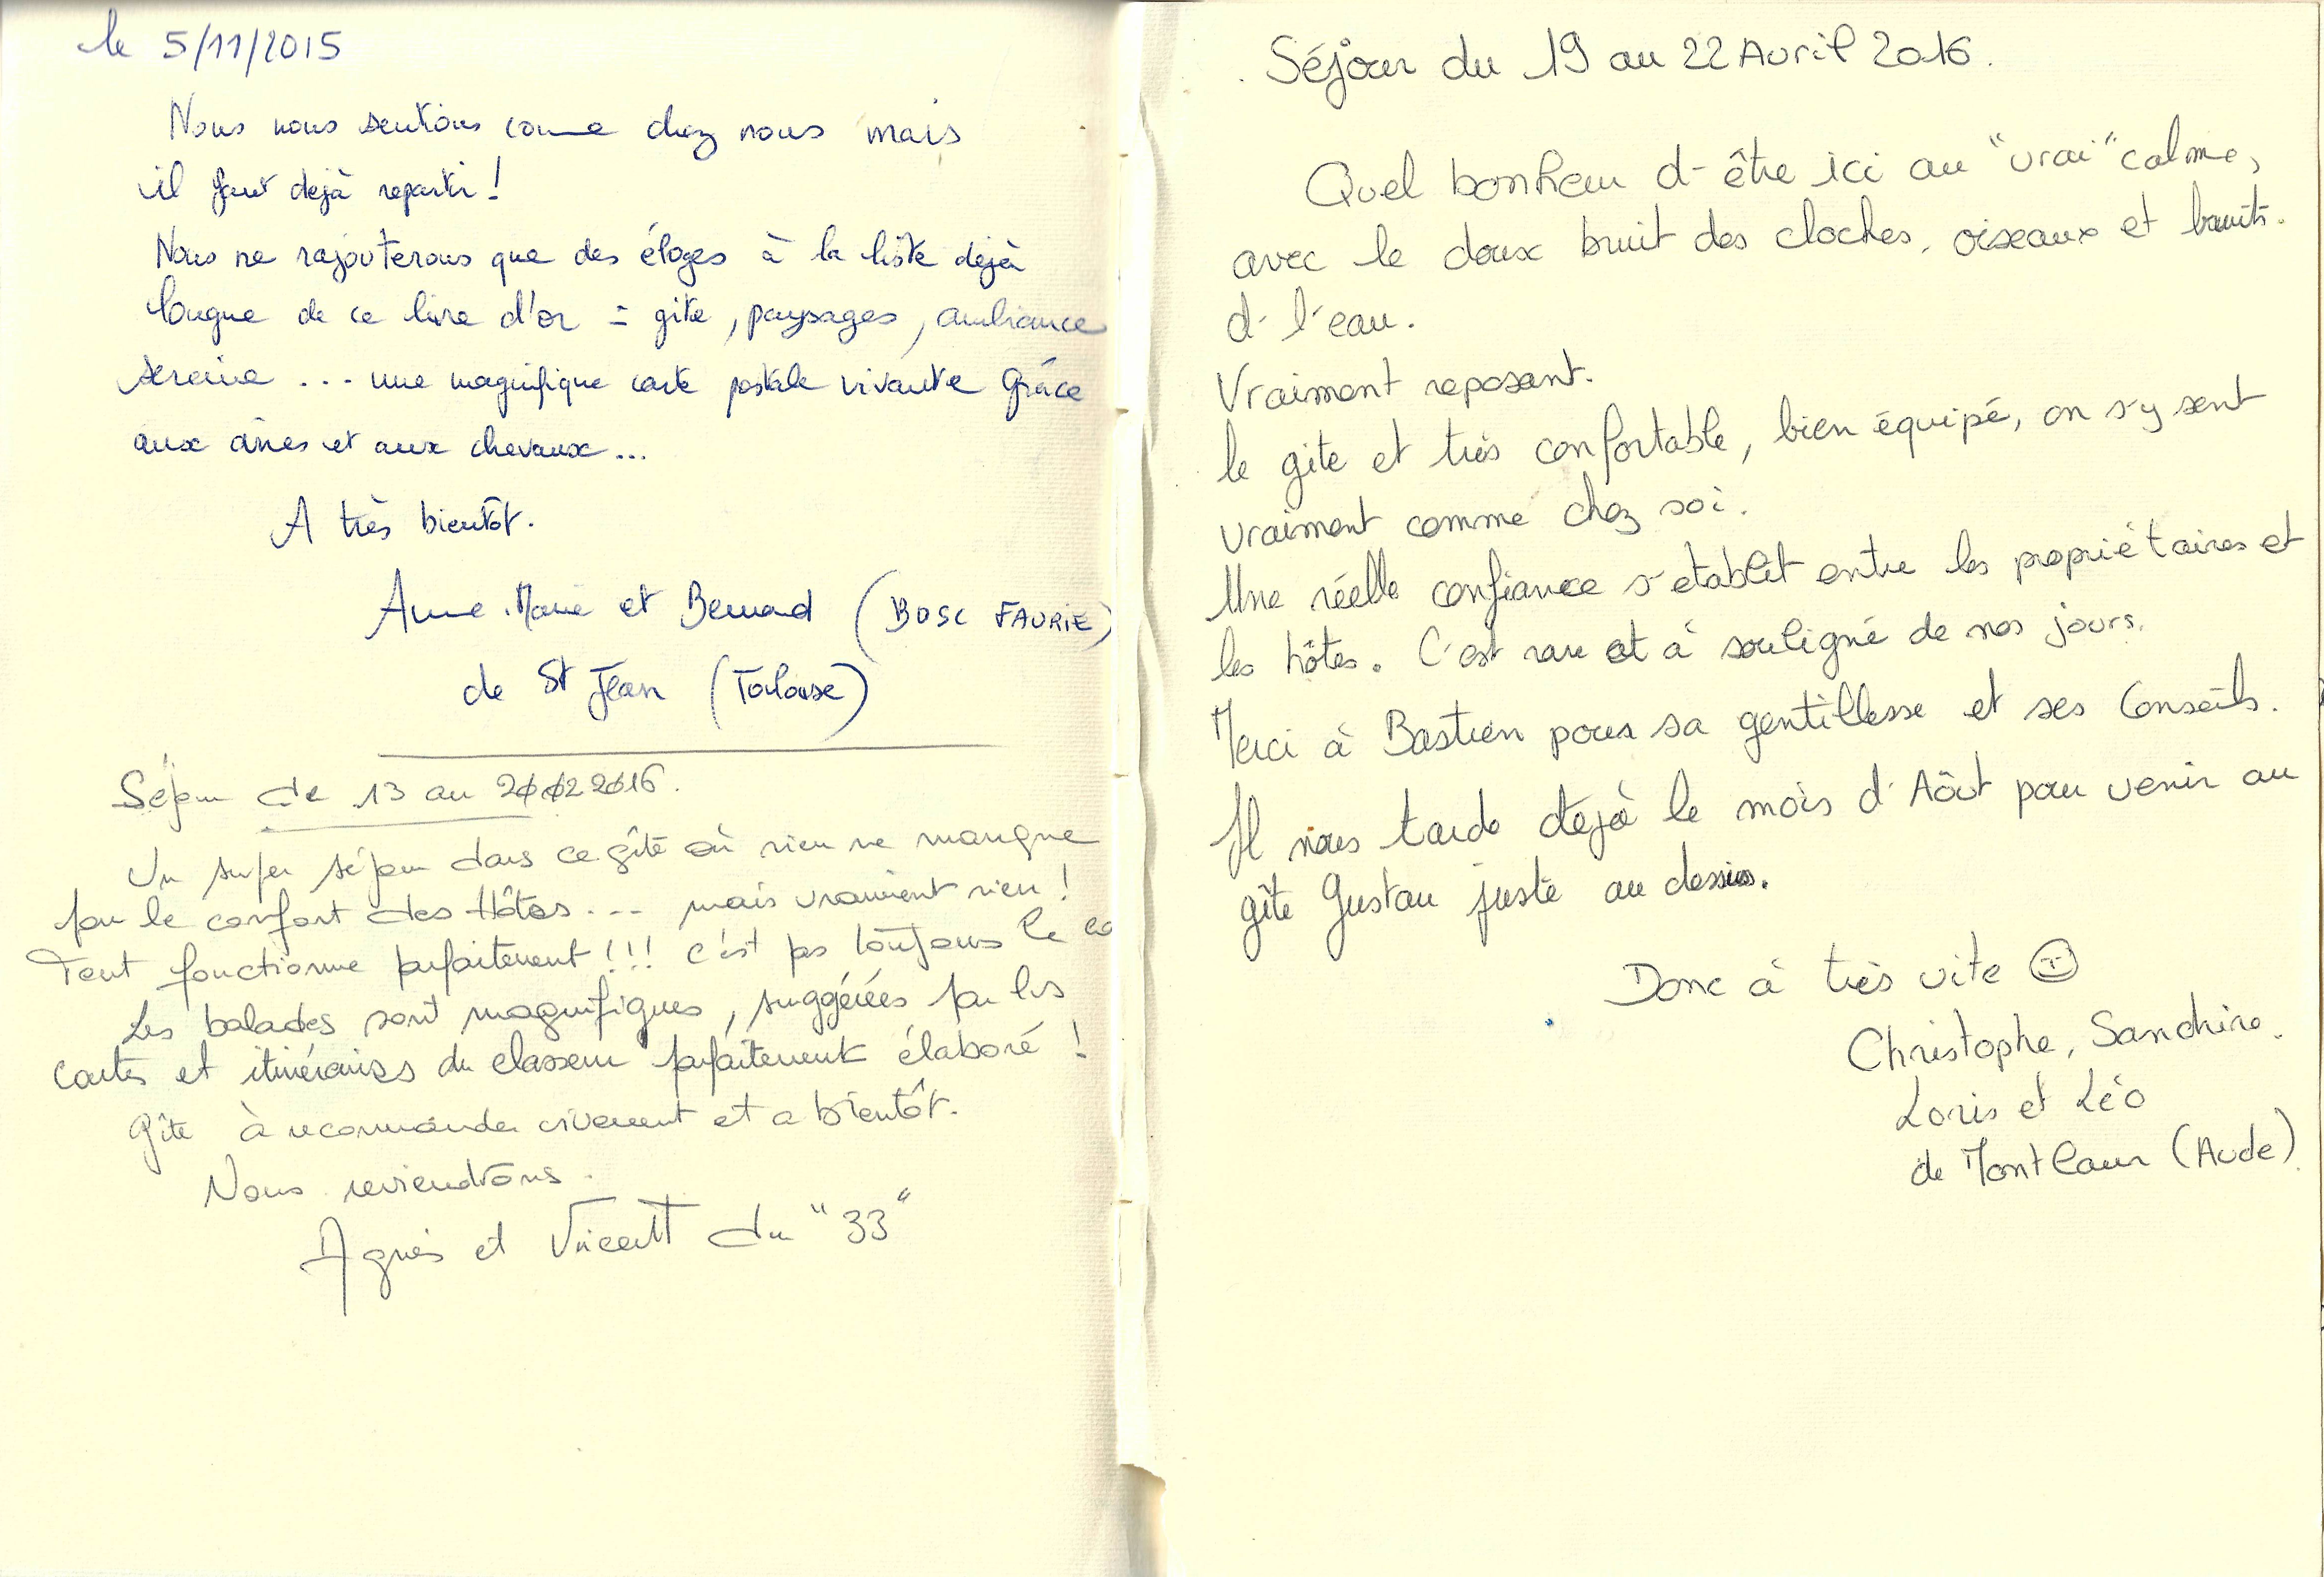 le 5/11/2015
Nous nous sentions comme chez nous mais
il faut dejà repartir !
Nous ne rajouterons que des éloges à la liste dejà
longue de ce livre d'or = gite, paysages, ambiance
sereine ... une magnifique carte postale vivante grâce
aux ânes et aux chevaux...
A très bientôt.
Anne.Marie et Bernard (BOSC FAURIE)
de St Jean (Toulouse)
Séjour de 13 au 20 02 2016.
Un super séjour dans ce gîte où rien ne manque
pour le confort des Hôtes... mais vraiment rien !
Tout fonctionne parfaitement !!! c'est pas toujours le
Les balades sont magnifiques, suggérées par les
cartes et itinéraires du classeur parfaitement élaboré !
Gîte à recommander vivement et a bientôt.
Nous reviendrons.
Agnès et Vincent du "33"
Séjour du 19 au 22 Avril 2016.
Quel bonheur d'être ici au "vrai" calme,
avec le doux bruit des cloches, oiseaux et bruits.
d' l'eau.
Vraiment reposant.
le gite et très confortable, bien équipé, on s'y sent
vraiment comme chez soi.
Une réelle confiance s'etablit entre les propriétaires et
les hôtes. C'est rare et à souligné de nos jours.
Merci à Bastien pour sa gentillesse et ses Conseils.
Il nous tarde dejà le mois d'Aôut pour venir au
gîte Gustau juste au dessus.
Donc à très vite ☺
Christophe, Sandrine.
Loris et Léo
de Montlaur (Aude).